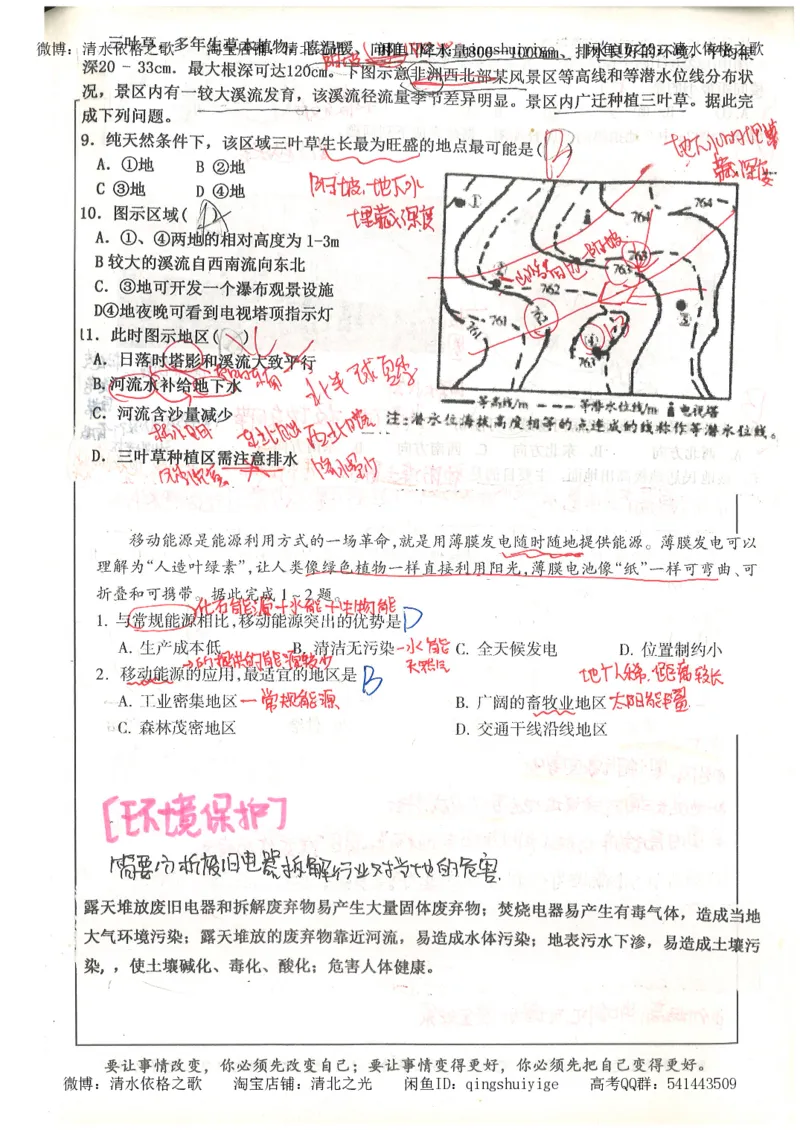 三叶草,多年生草本植物,喜温暖、向阳
降水量300-1000mm、排水良好的环境
微博:清水依格之歌 淘宝店铺:清北之光 闲鱼ID:qingshuiyige
深20-33cm.最大根深可达120cm。下图示意非洲西北部某风景区等高线和等潜水位线分布状
况,景区内有一较大溪流发育,该溪流径流量季节差异明显。景区内广迁种植三叶草。据此完
成下列问题。
9.纯天然条件下,该区域三叶草生长最为旺盛的地点最可能是( D )
A.①地 B ②地
C ③地 D ④地
地下水的埋藏深度
阴坡.地下水
埋藏深度
10.图示区域( )
A.①、④两地的相对高度为 1-3m
B 较大的溪流自西南流向东北
C.③地可开发一个瀑布观景设施
D④地夜晚可看到电视塔顶指示灯
11.此时图示地区( )
A.日落时塔影和溪流大致平行
B.河流水补给地下水
C.河流含沙量减少
D.三叶草种植区需注意排水
北半球夏季
① 764 764
阴坡
763 763
② 762 762
761 761
③ ④ 763
等高线/m 等潜水位线/m 电视塔
注:潜水位海拔高度相等的点连成的线称作等潜水位线。
移动能源是能源利用方式的一场革命,就是用薄膜发电随时随地提供能源。薄膜发电可以
理解为“人造叶绿素”,让人类像绿色植物一样直接利用阳光,薄膜电池像“纸”一样可弯曲、可
折叠和可携带。据此完成1~2题。
化石能源+水能+生物能
1. 与常规能源相比,移动能源突出的优势是 D
A. 生产成本低 B. 清洁无污染 -水能 天然气 C. 全天候发电 D. 位置制约小
→所提供的能源较少
2. 移动能源的应用,最适宜的地区是 B
地广人稀,距离较长
A. 工业密集地区 -常规能源 B. 广阔的畜牧业地区 太阳能丰富
C. 森林茂密地区 D. 交通干线沿线地区
[环境保护]
需要分析废旧电器拆解行业对当地的危害
露天堆放废旧电器和拆解废弃物易产生大量固体废弃物;焚烧电器易产生有毒气体,造成当地
大气环境污染;露天堆放的废弃物靠近河流,易造成水体污染;地表污水下渗,易造成土壤污
染,,使土壤碱化、毒化、酸化;危害人体健康。
要让事情改变,你必须先改变自己;要让事情变得更好,你必须先把自己变得更好。
微博:清水依格之歌 淘宝店铺:清北之光 闲鱼ID:qingshuiyige 高考QQ群:541443509